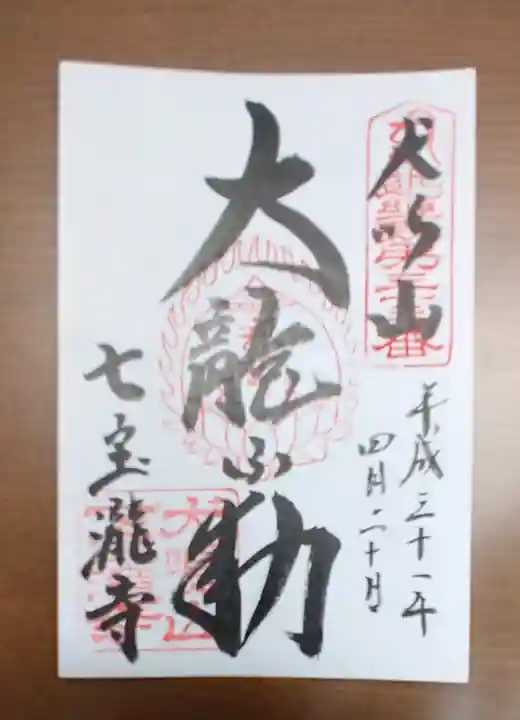 犬鳴山
平成三十一年
四月二十月
大龍不動
七宝瀧寺